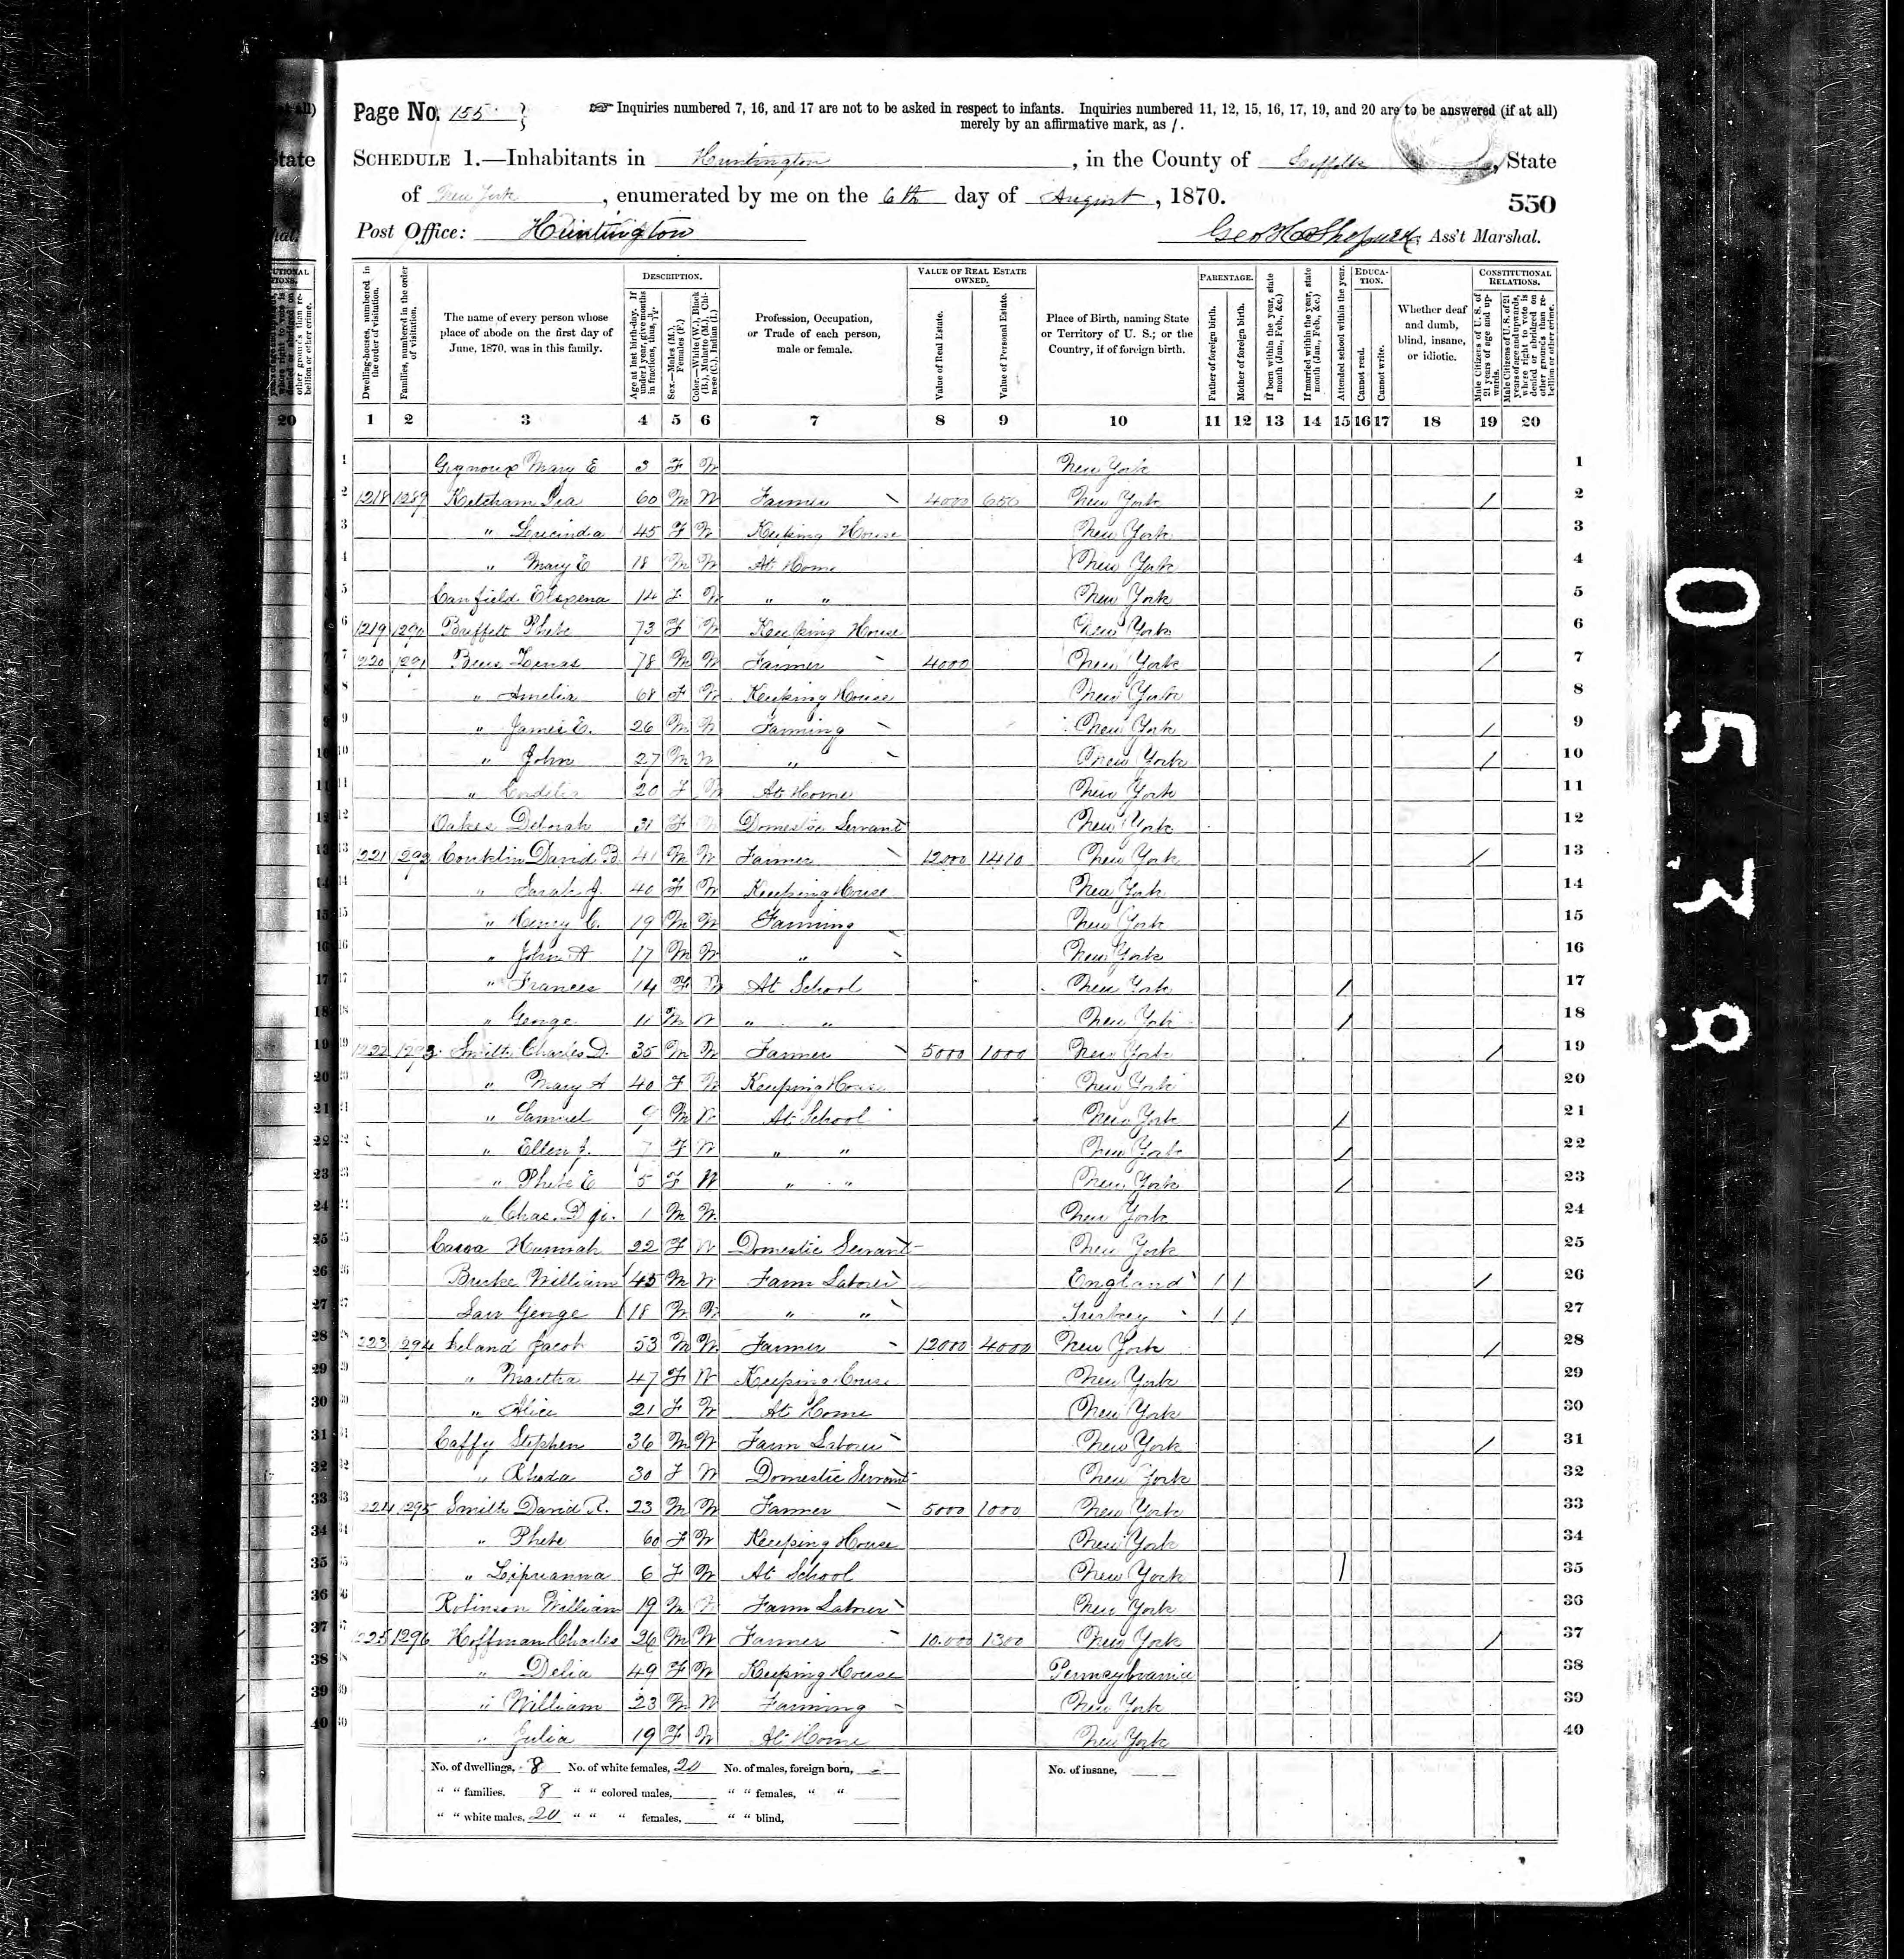 Page No. 155
☞ Inquiries numbered 7, 16, and 17 are not to be asked in respect to infants. Inquiries numbered 11, 12, 15, 16, 17, 19, and 20 are to be answered (if at all)
merely by an affirmative mark, as /.
SCHEDULE 1.—Inhabitants in Huntington, in the County of Suffolk, State
of New York, enumerated by me on the 6th day of August, 1870.
550
Post Office: Huntington
Geo H Shepard, Ass't Marshal.
Dwelling-houses, numbered in the order of visitation.
Families, numbered in the order of visitation.
The name of every person whose place of abode on the first day of June, 1870, was in this family.
DESCRIPTION.
Age at last birth-day. If under 1 year, give months in fractions, thus,
Sex.—Males (M.), Females (F.)
Color.—White (W.), Black (B.), Mulatto (M.), Chinese (C.), Indian (I.)
Profession, Occupation, or Trade of each person, male or female.
VALUE OF REAL ESTATE OWNED.
Value of Real Estate.
Value of Personal Estate.
Place of Birth, naming State or Territory of U. S.; or the Country, if of foreign birth.
PARENTAGE.
Father of foreign birth.
Mother of foreign birth.
If born within the year, state month (Jan., Feb., &c.)
If married within the year, state month (Jan., Feb., &c.)
Attended school within the year.
EDUCATION.
Cannot read.
Cannot write.
Whether deaf and dumb, blind, insane, or idiotic.
CONSTITUTIONAL RELATIONS.
Male Citizens of U. S. of 21 years of age and upwards.
Male Citizens of U. S. of 21 years of age and upwards, where right to vote is denied or abridged on other grounds than rebellion or other crime.
1 2 3 4 5 6 7 8 9 10 11 12 13 14 15 16 17 18 19 20
1 Mary E 3 F W New York 1
2 1218 1289 Ketcham Ira 60 M W Farmer 4000 650 New York / 2
3 " Lucinda 45 F W Keeping House New York 3
4 " Mary E 18 M W At Home New York 4
5 Canfield 14 F W " " New York 5
6 1219 1290 Buffett Phebe 73 F W Keeping House New York 6
7 1220 1291 Zenas 78 M W Farmer 4000 New York / 7
8 " Amelia 68 F W Keeping House New York 8
9 " James E. 26 M W Farming New York / 9
10 " John 27 M W " New York / 10
11 " Cordelia 20 F W At Home New York 11
12 Oakes Deborah 31 F W Domestic Servant New York 12
13 1221 1292 Conklin David B. 41 M W Farmer 12000 1410 New York / 13
14 " Sarah J. 40 F W Keeping House New York 14
15 " Henry C. 19 M W Farming New York 15
16 " John A 17 M W " New York 16
17 " Frances 14 F W At School New York / 17
18 " George 11 M W " " New York / 18
19 1222 1293 Smith Charles D. 35 M W Farmer 5000 1000 New York / 19
20 " Mary A 40 F W Keeping House New York 20
21 " Samuel 9 M W At School New York / 21
22 " Ellen J. 7 F W " " New York / 22
23 " Phebe E 5 F W " " New York / 23
24 " Chas. D jr. 1 M W New York 24
25 Hannah 22 F W Domestic Servant New York 25
26 Burke William 45 M W Farm Laborer England / / / 26
27 George 18 M W " " Turkey / / 27
28 1223 1294 Ireland Jacob 53 M W Farmer 12000 4000 New York / 28
29 " Martha 47 F W Keeping House New York 29
30 " Alice 21 F W At Home New York 30
31 Caffy Stephen 36 M W Farm Laborer New York / 31
32 " Rhoda 30 F W Domestic Servant New York 32
33 1224 1295 Smith David R. 23 M W Farmer 5000 1000 New York 33
34 " Phebe 60 F W Keeping House New York 34
35 " 6 F W At School New York / 35
36 Robinson William 19 M W Farm Laborer New York 36
37 1225 1296 Hoffman Charles 26 M W Farmer 10.000 1300 New York / 37
38 " Delia 49 F W Keeping House Pennsylvania 38
39 " William 23 M W Farming New York 39
40 " Julia 19 F W At Home New York 40
No. of dwellings, 8 No. of white females, 20 No. of males, foreign born, No. of insane,
" " families, 8 " " colored males, " " females, " "
" " white males, 20 " " " females, " " blind,
0538